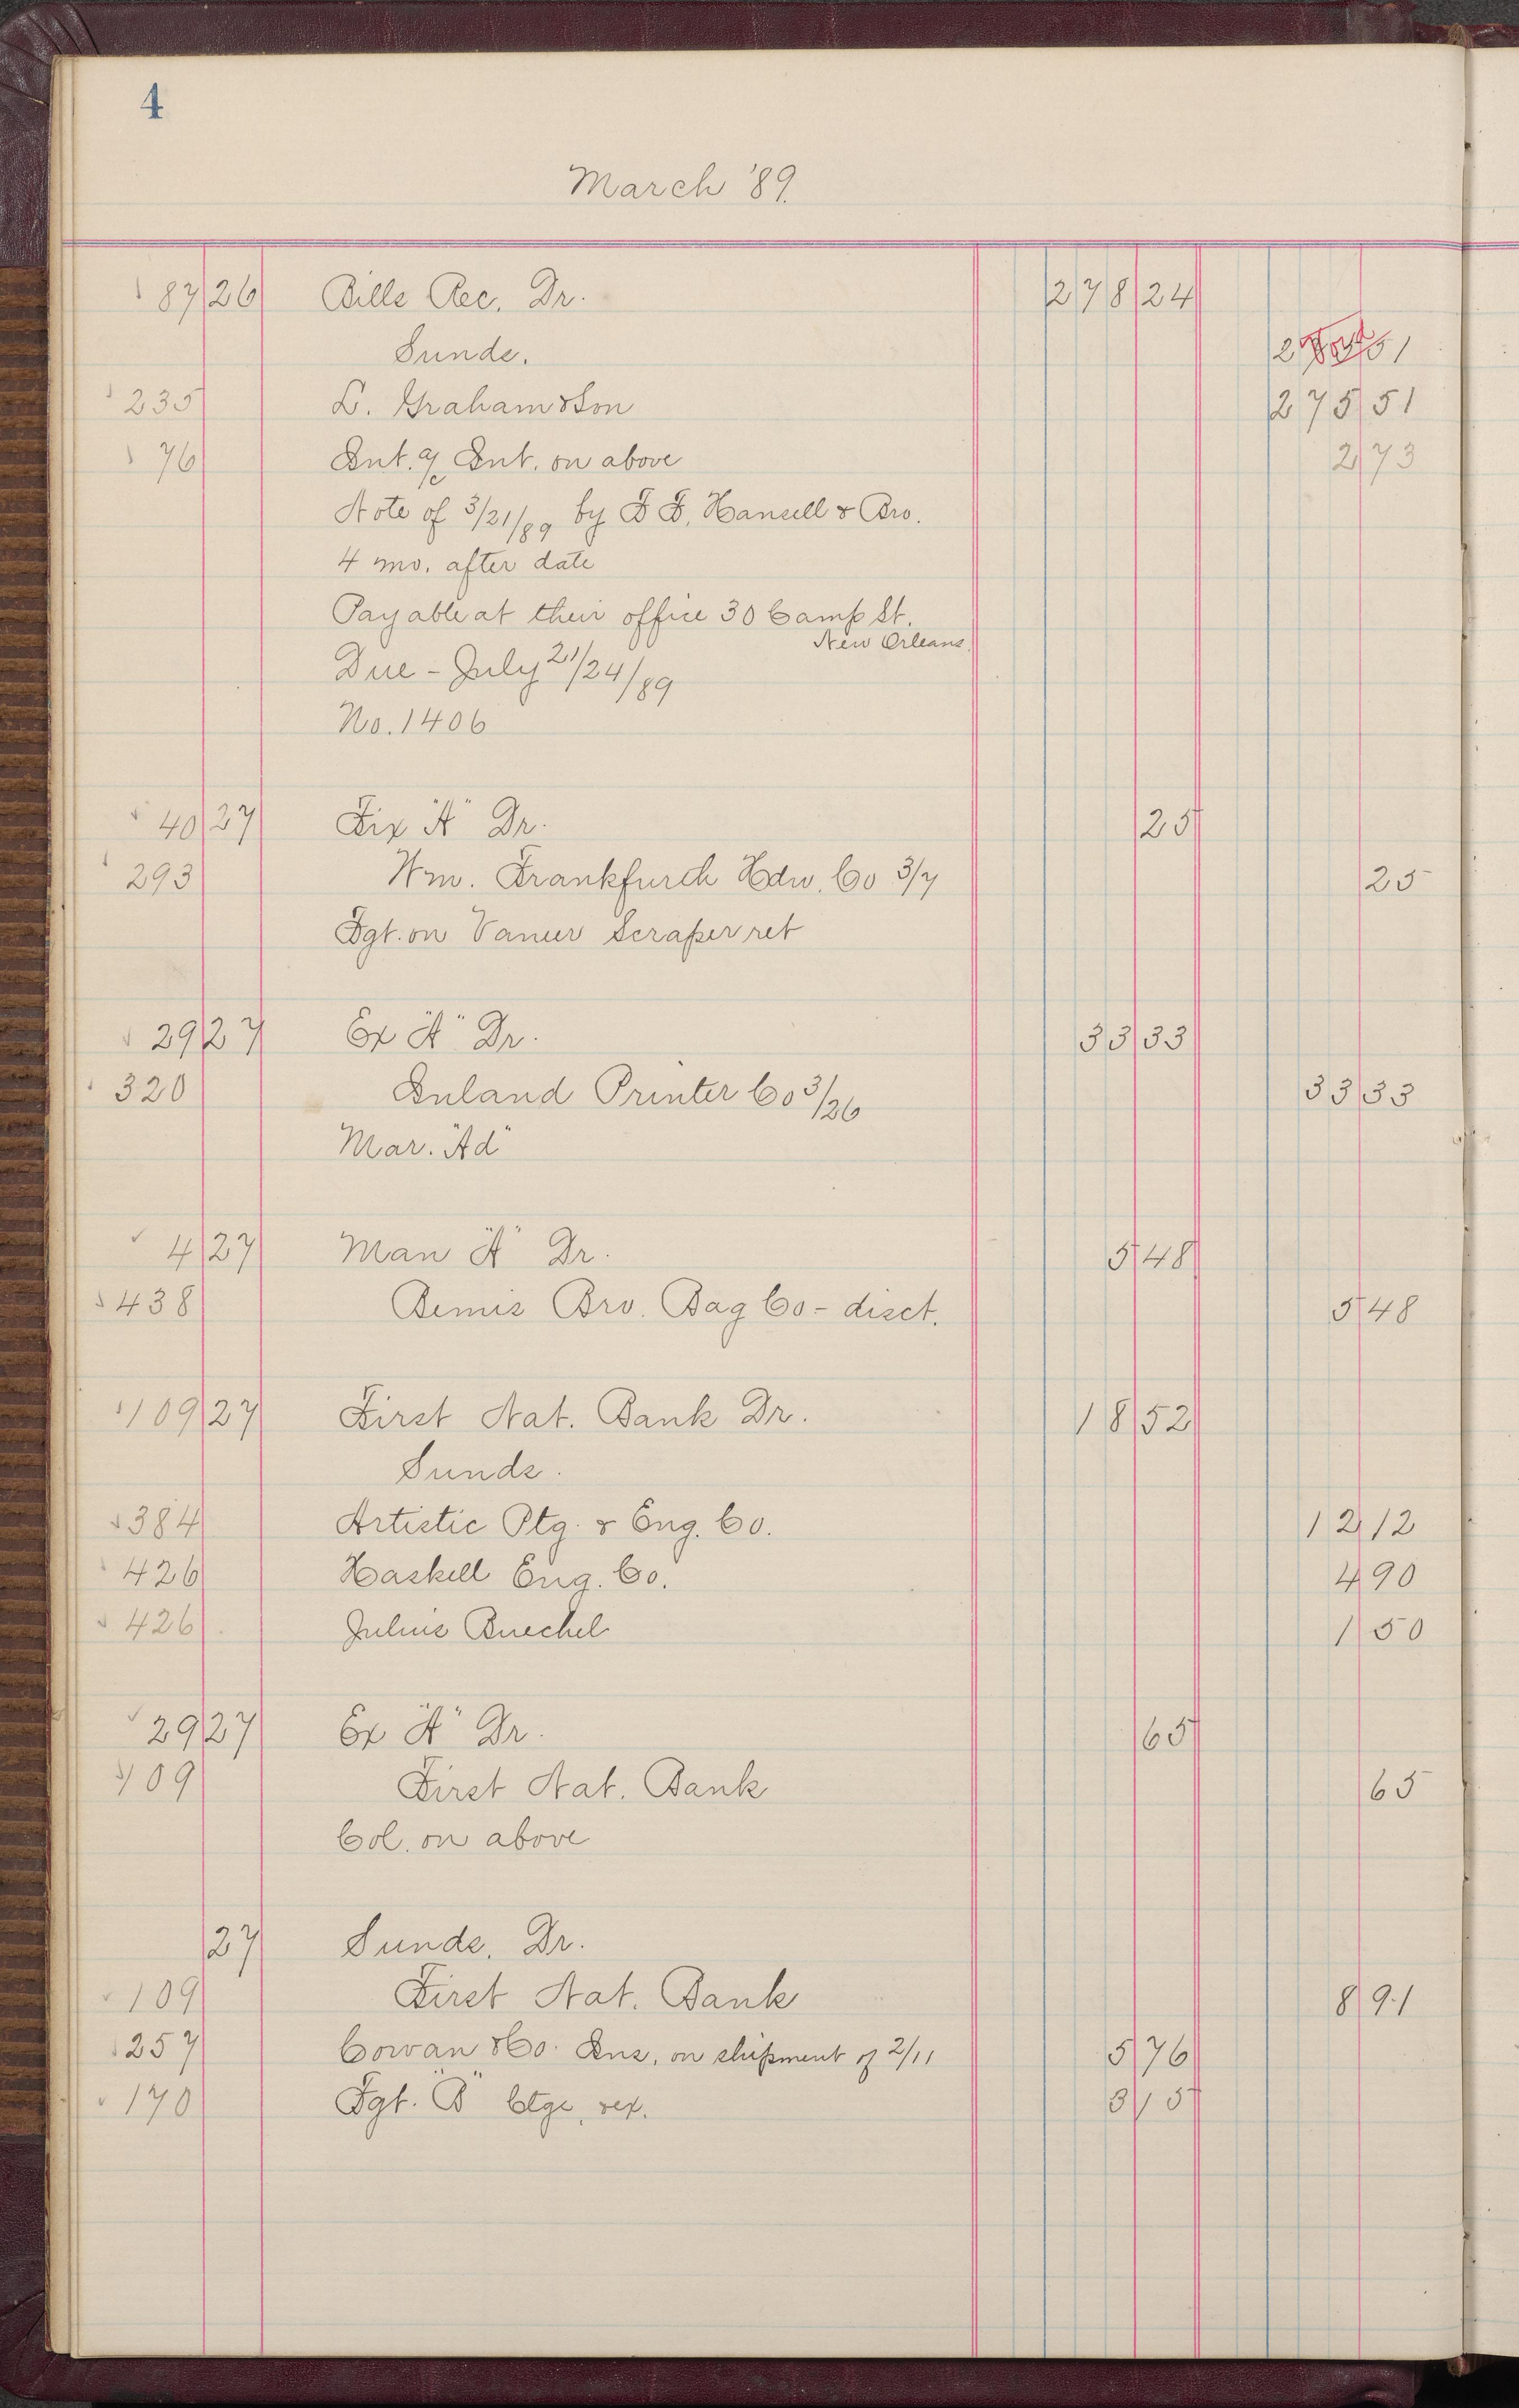 4
March '89.
87 26 Bills Rec. Dr. 278 24
Sunds. Void
235 L. Graham & Son 275 51
76 Int. a/c Int. on above 2 73
Note of 3/21/89 by F F. Hansell & Bro.
4 mo. after date
Payable at their office 30 Camp St.
New Orleans.
Due - July 21/24/89
No. 1406
40 27 Fix "A" Dr. 25
293 Wm. Frankfurth Hdw. Co 3/7 25
Fgt. on Vaneer Scraper ret
29 27 Ex "A" Dr. 33 33
320 Inland Printer Co 3/26 33 33
Mar. "Ad"
4 27 Man "A" Dr. 5 48
438 Bemis Bro. Bag Co - disct. 5 48
109 27 First Nat. Bank Dr. 18 52
Sunds.
384 Artistic Ptg. & Eng. Co. 12 12
426 Haskell Eng. Co. 4 90
426 Julius Buechel 1 50
29 27 Ex "A" Dr. 65
109 First Nat. Bank 65
Col. on above
27 Sunds. Dr.
109 First Nat. Bank 8 91
257 Cowan & Co. Ins. on shipment of 2/11 5 76
170 Fgt. "B" Ctge, rex. 3 15